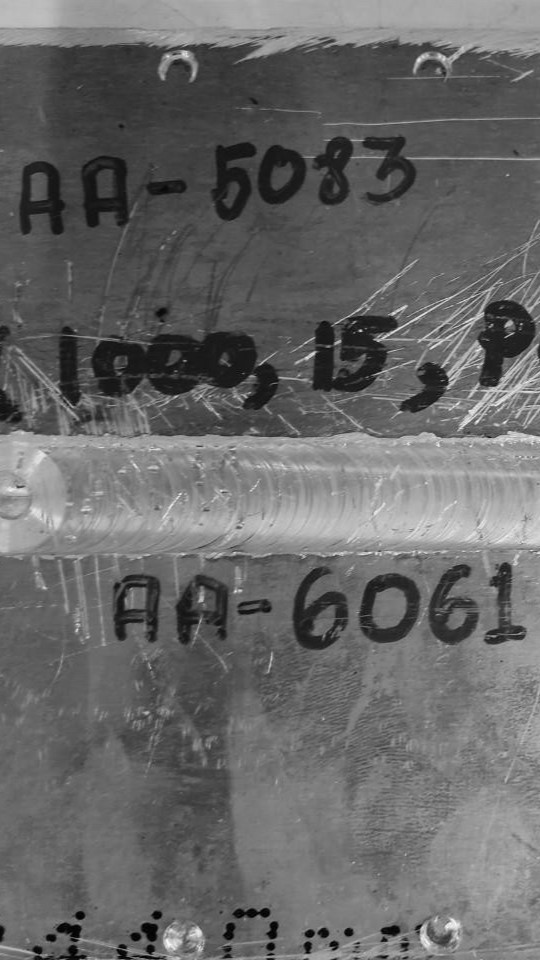 AA-5083
1000, 15, P
AA-6061